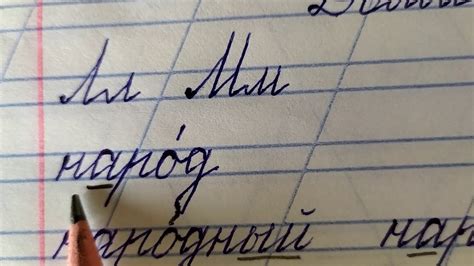 Лл Мм
наро́д
наро́дный нар